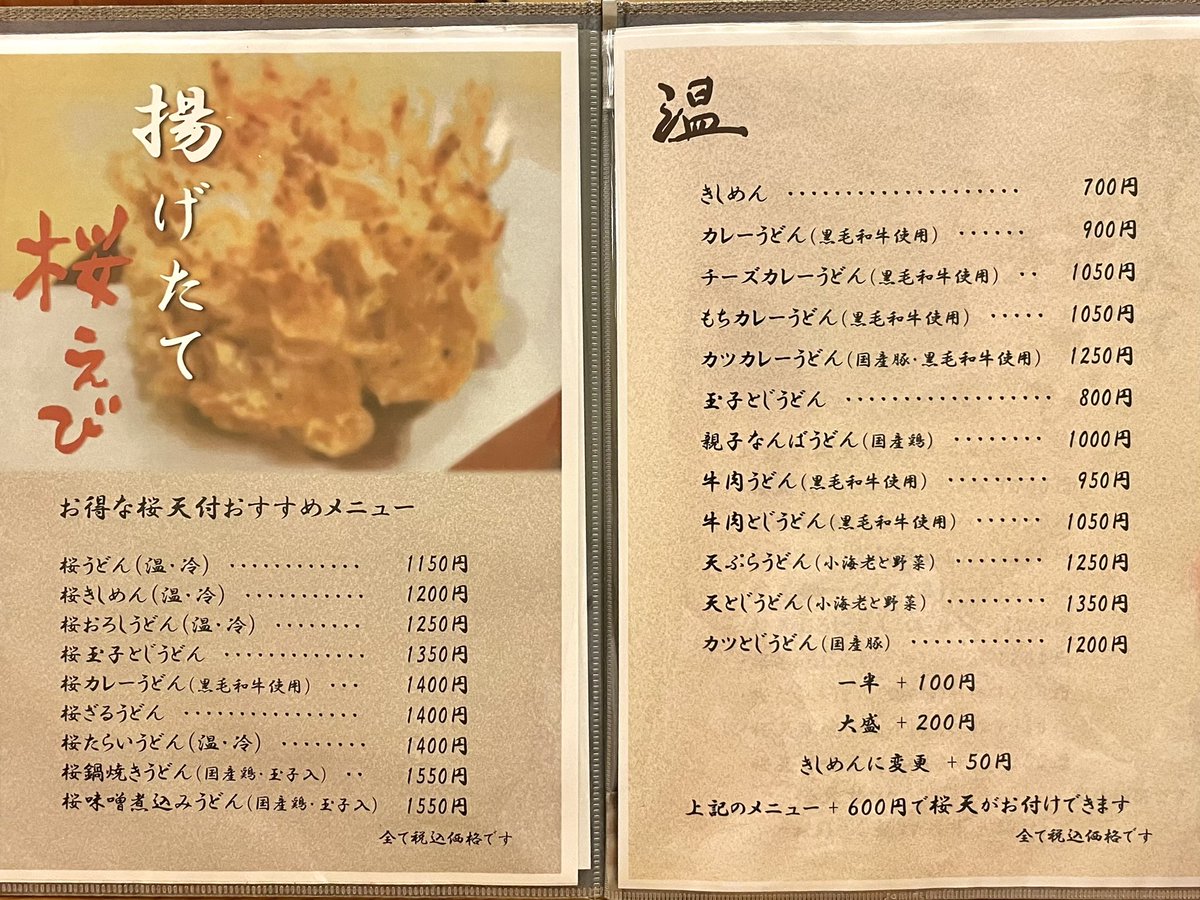 揚げたて
桜えび
お得な桜天付おすすめメニュー
桜うどん(温・冷) ············ 1150円
桜きしめん(温・冷) ··········· 1200円
桜おろしうどん(温・冷) ········ 1250円
桜玉子とじうどん ············· 1350円
桜カレーうどん(黒毛和牛使用) ··· 1400円
桜ざるうどん ················ 1400円
桜たらいうどん(温・冷) ········ 1400円
桜鍋焼きうどん(国産鶏・玉子入) ·· 1550円
桜味噌煮込みうどん(国産鶏・玉子入) 1550円
全て税込価格です
温
きしめん ···················· 700円
カレーうどん(黒毛和牛使用) ······ 900円
チーズカレーうどん(黒毛和牛使用) ·· 1050円
もちカレーうどん(黒毛和牛使用) ····· 1050円
カツカレーうどん(国産豚・黒毛和牛使用) 1250円
玉子とじうどん ·················· 800円
親子なんばうどん(国産鶏) ········ 1000円
牛肉うどん(黒毛和牛使用) ········· 950円
牛肉とじうどん(黒毛和牛使用) ······ 1050円
天ぷらうどん(小海老と野菜) ········ 1250円
天とじうどん(小海老と野菜) ········· 1350円
カツとじうどん(国産豚) ············ 1200円
一半 + 100円
大盛 + 200円
きしめんに変更 + 50円
上記のメニュー + 600円で桜天がお付けできます
全て税込価格です